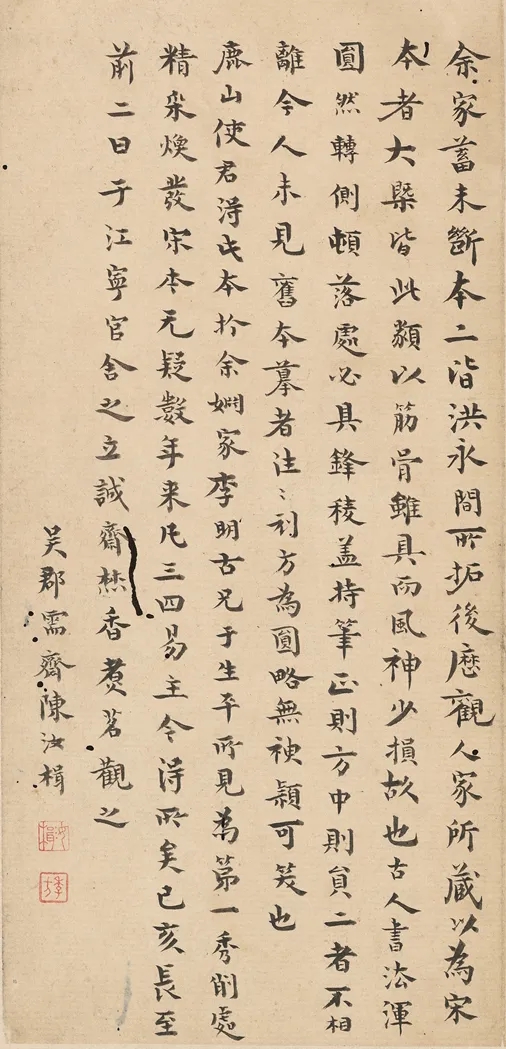 余家蓄未斷本二皆洪永間所拓後歷觀人家所藏以為宋
本者大槩皆此類以筋骨雖具而風神少損故也古人書法渾
圓然轉側頓落處必具鋒稜蓋持筆正則方中則員二者不相
離今人未見舊本摹者往〻刓方為圓略無神穎可笑也
鹿山使君得此本扵余婣家李明古兄于生平所見為第一秀削處
精采煥發宋本无疑數年来凡三四易主今得所矣己亥長至
前二日于江寧官舍之立誠齋爇香煑茗觀之
吴郡需齋陳汝楫
汝楫
季方